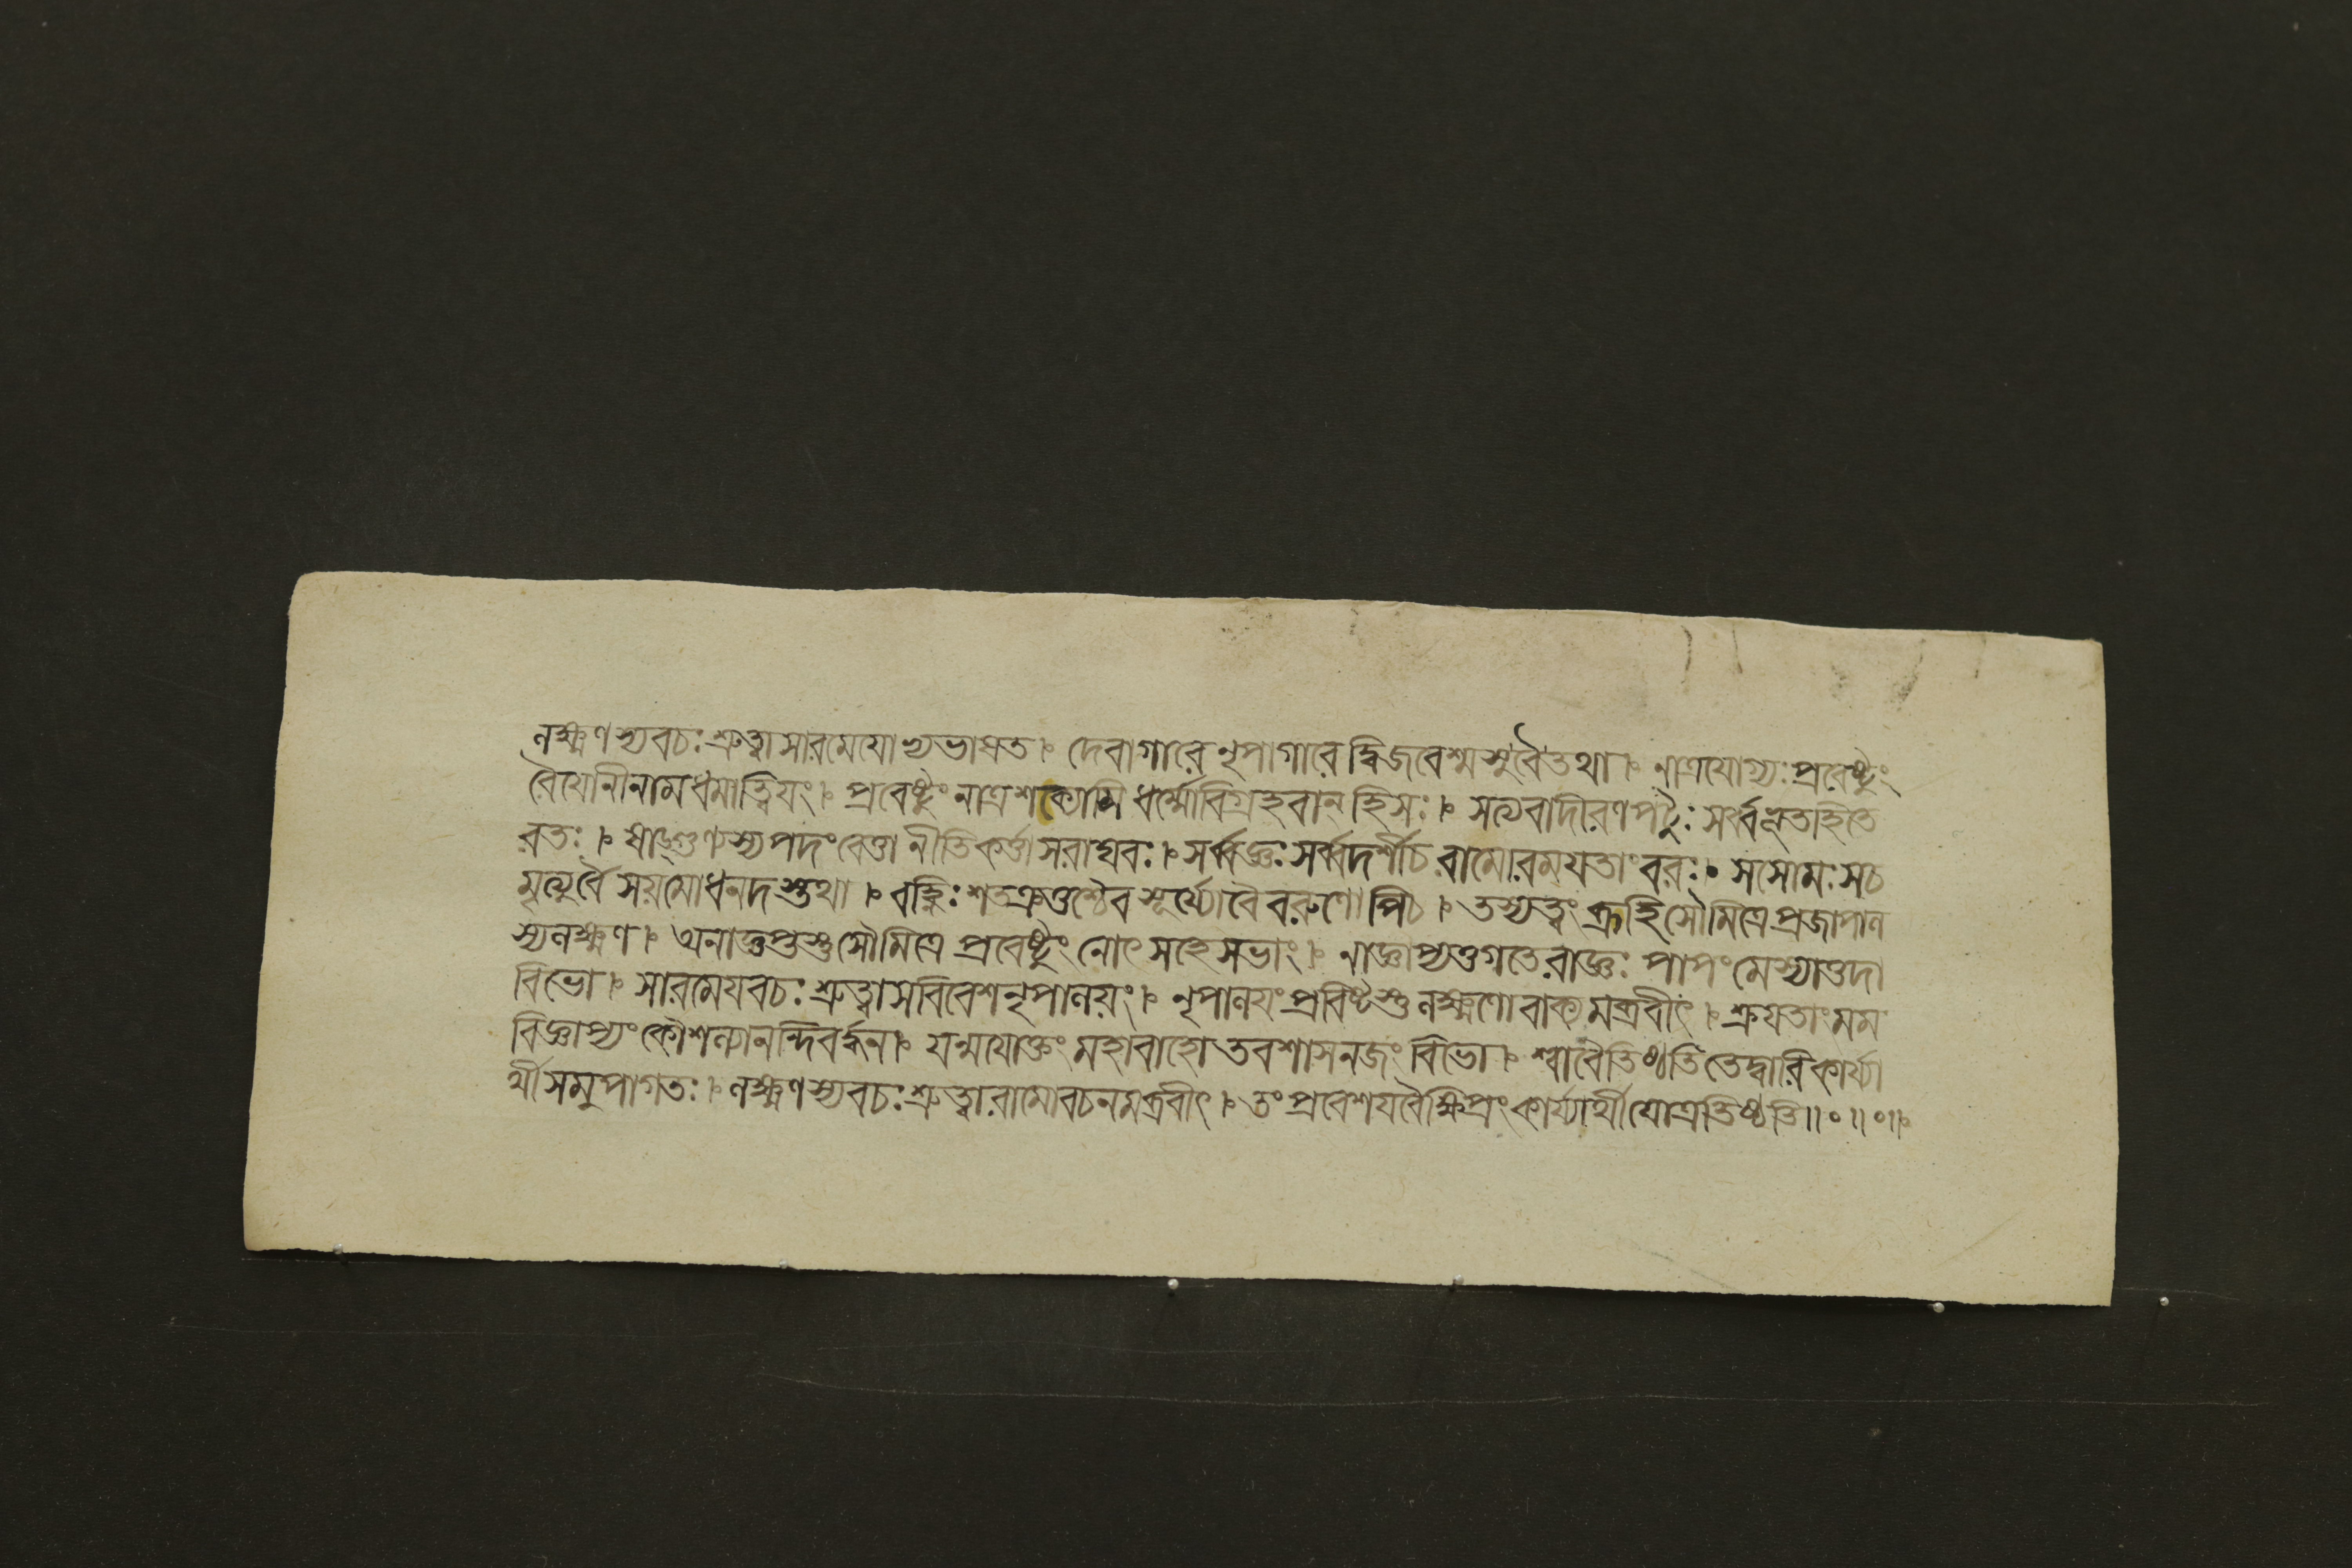 লক্ষ্মণস্যবচঃশ্রুত্বাসারমেযোভ্যভাষত । দেবাগারেনৃপাগারেদ্বিজবেশ্মসুবৈতথা । নাত্রযোগ্যঃপ্রবেষ্টুং
বৈযোনীনামধমাত্বিযং । প্রবেষ্টুংনাত্রশক্যোমিধর্ম্মোবিগ্রহবান্হিসঃ । সত্যবাদীরণপটুঃসর্ব্বভূতহিতে
রতঃ । ষাড়্গুণ্যস্যপদংবেত্তানীতিকর্ত্তাসরাঘবঃ । সর্ব্বজ্ঞঃসর্ব্বদর্শীচরামোরময়তাংবরঃ । সসোমঃসচ
মৃত্যুর্বৈসয়মোধনদস্তথা । বহ্নিঃশতক্রতুশ্চৈবসূর্য্যোবৈবরুণোপিচ । তস্যত্বংব্রূহিসৌমিত্রেপ্রজাপাল
স্যলক্ষ্মণ । অনাজ্ঞপ্তস্তুসৌমিত্রেপ্রবেষ্টুংনোৎসহেসভাং । নাজ্ঞাপ্য রাজ্ঞঃপাপংমেস্যাত্তদা
বিভো । সারমেযবচঃশ্রুত্বাসবিবেশনৃপালয়ং । নৃপালযংপ্রবিষ্টস্তুলক্ষ্মণোবাক্যমব্রবীৎ । শ্রুযতাংমম
বিজ্ঞাপ্যংকৌশল্যানন্দিবর্দ্ধন । যন্মযোক্তংমহাবাহোতবশাসনজংবিভো । শ্বাবৈতিষ্ঠতিতেদ্বারিকার্য্যা
র্থীসমুপাগতঃ । লক্ষ্মণস্যবচঃশ্রুত্বারামোবচনমব্রবীৎ । তংপ্রবেশযবৈক্ষিপ্রংকার্য্যার্থীযোত্রতিষ্ঠতি॥०॥०॥